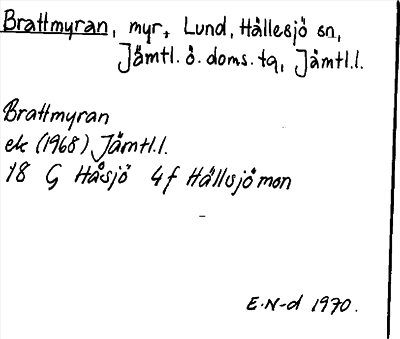 Brattmyran, myr, Lund, Hällesjö sn,
Jämtl. ö. doms. tq, Jämtl.l.
Brattmyran
ek (1968) Jämtl.l.
18 G Håsjö 4f Hällsjömon
E.N-d 1970.